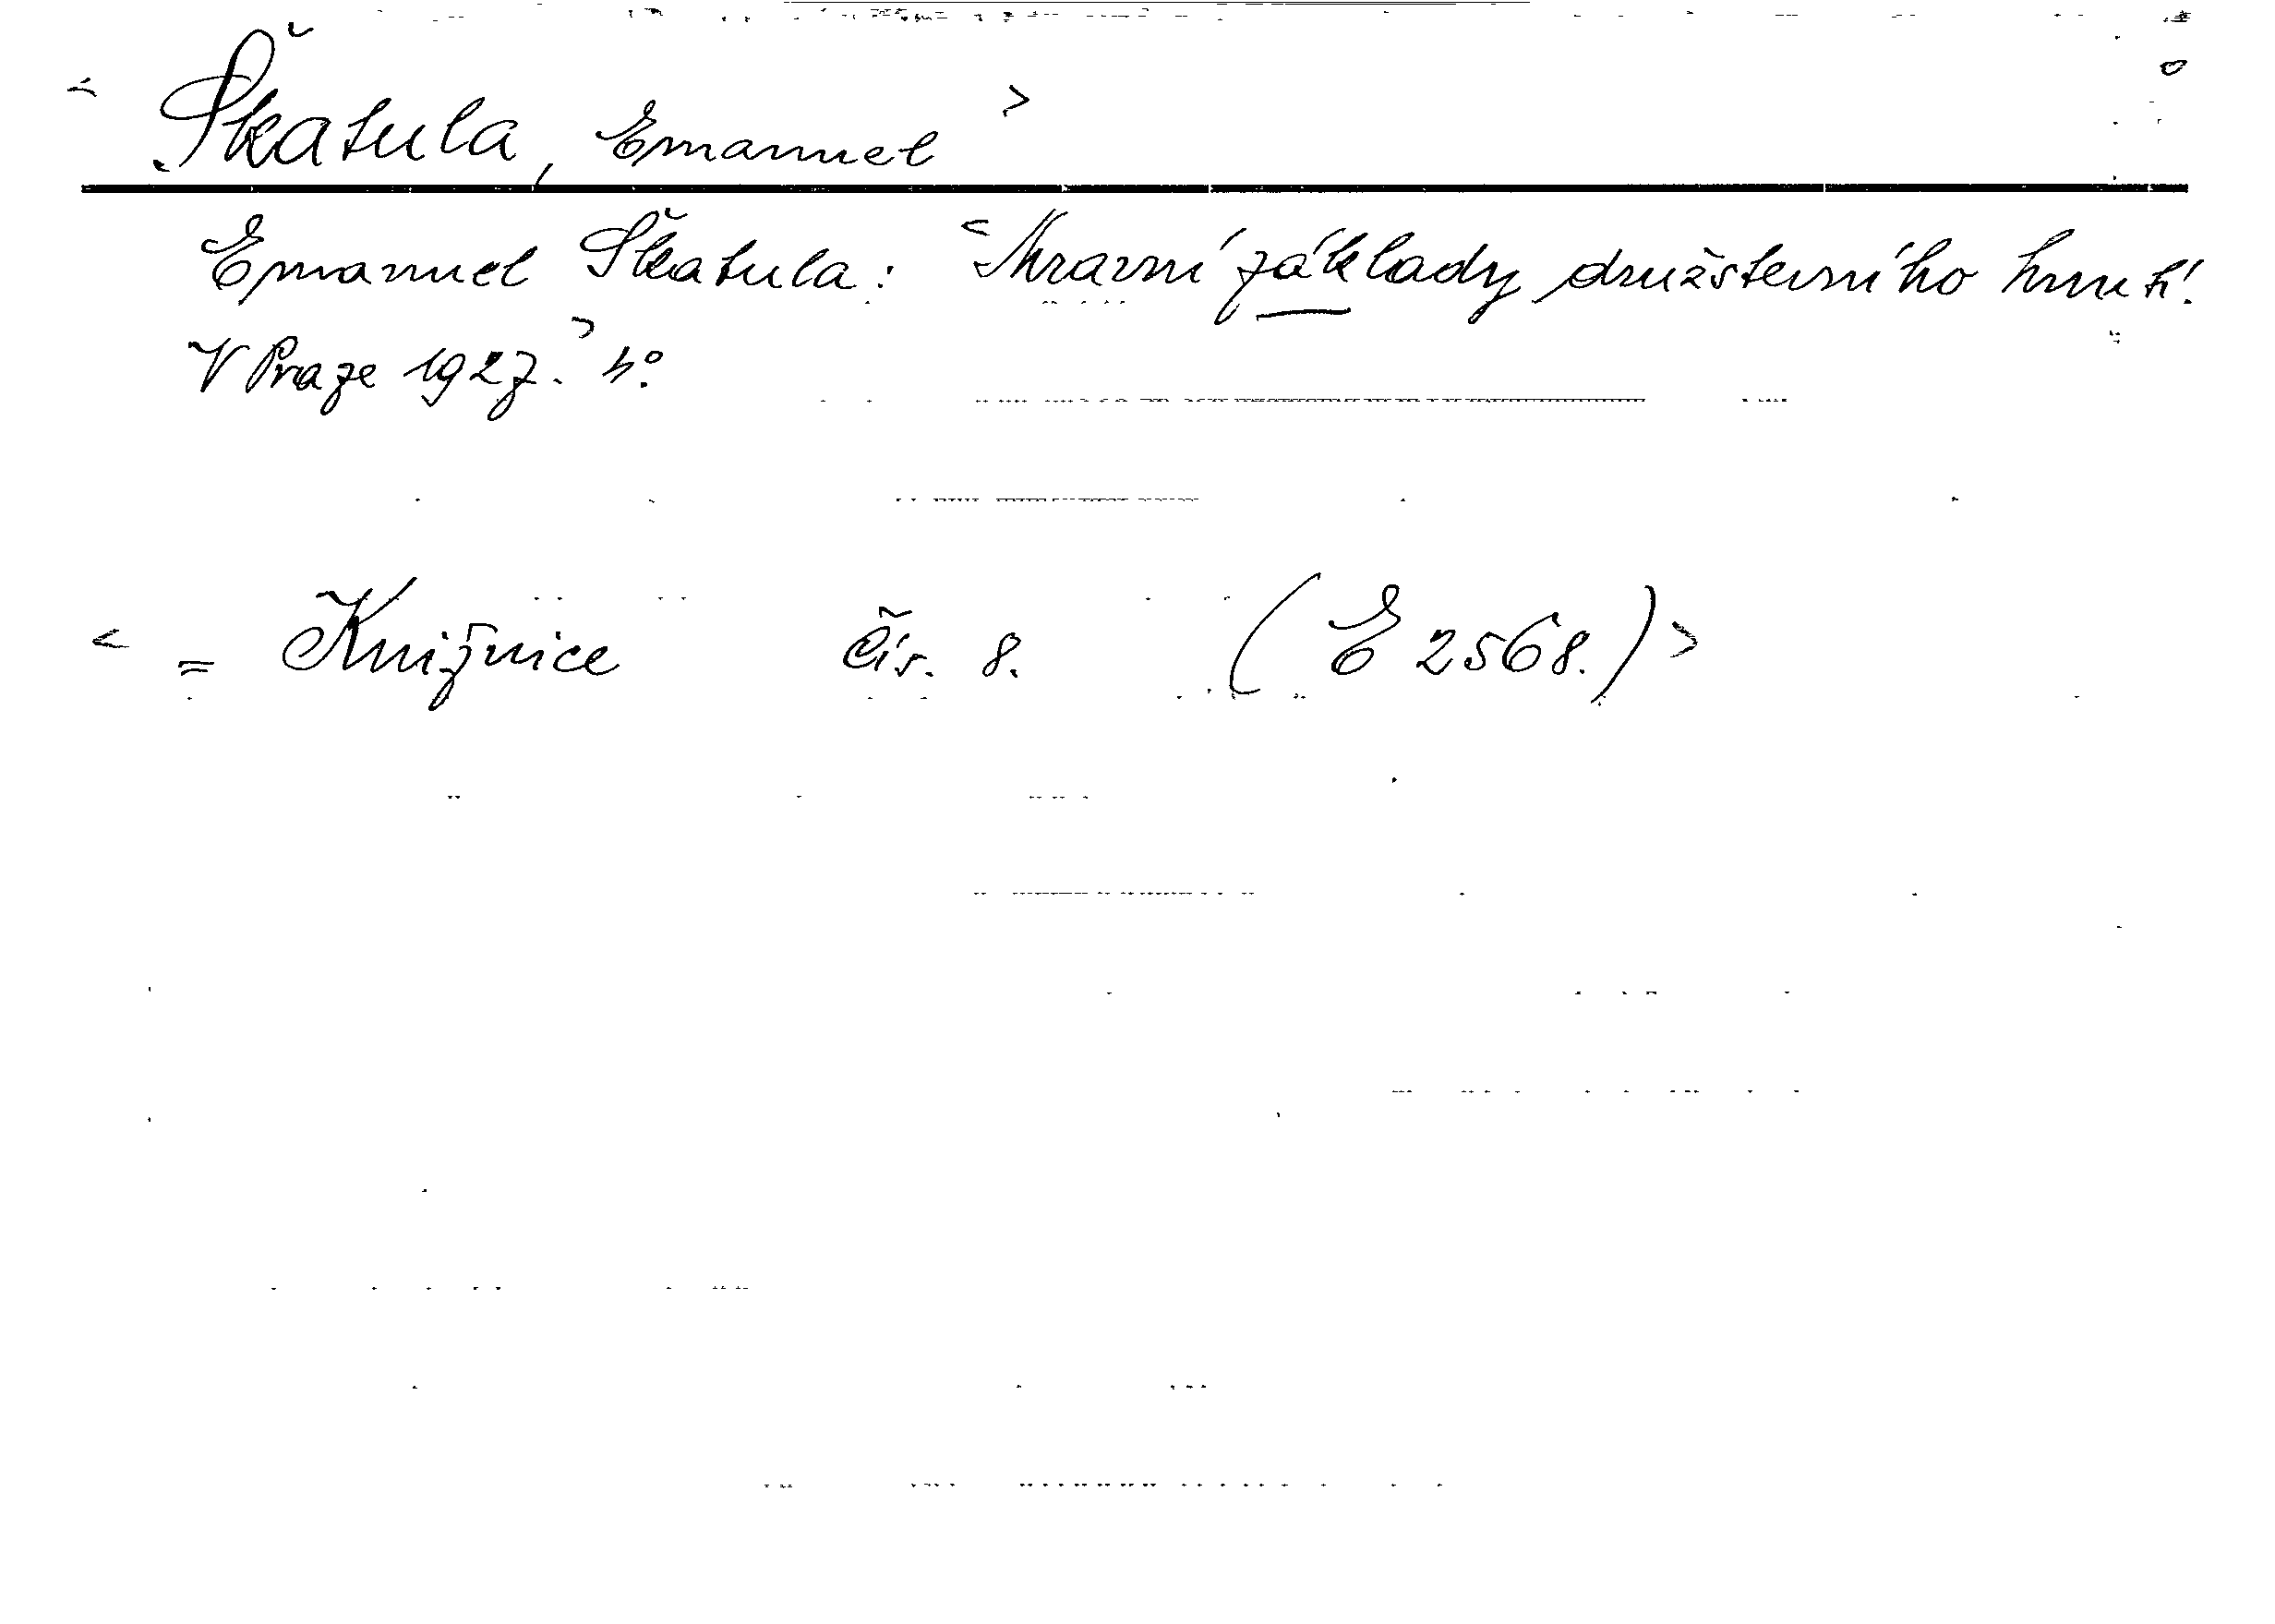 < Škatula, Emanuel >
Emanuel Škatula: <Mravní základy družstevního hnutí.
V Praze 1927.> 4°.
< = Knižnice čís. 8. (E 2568.) >